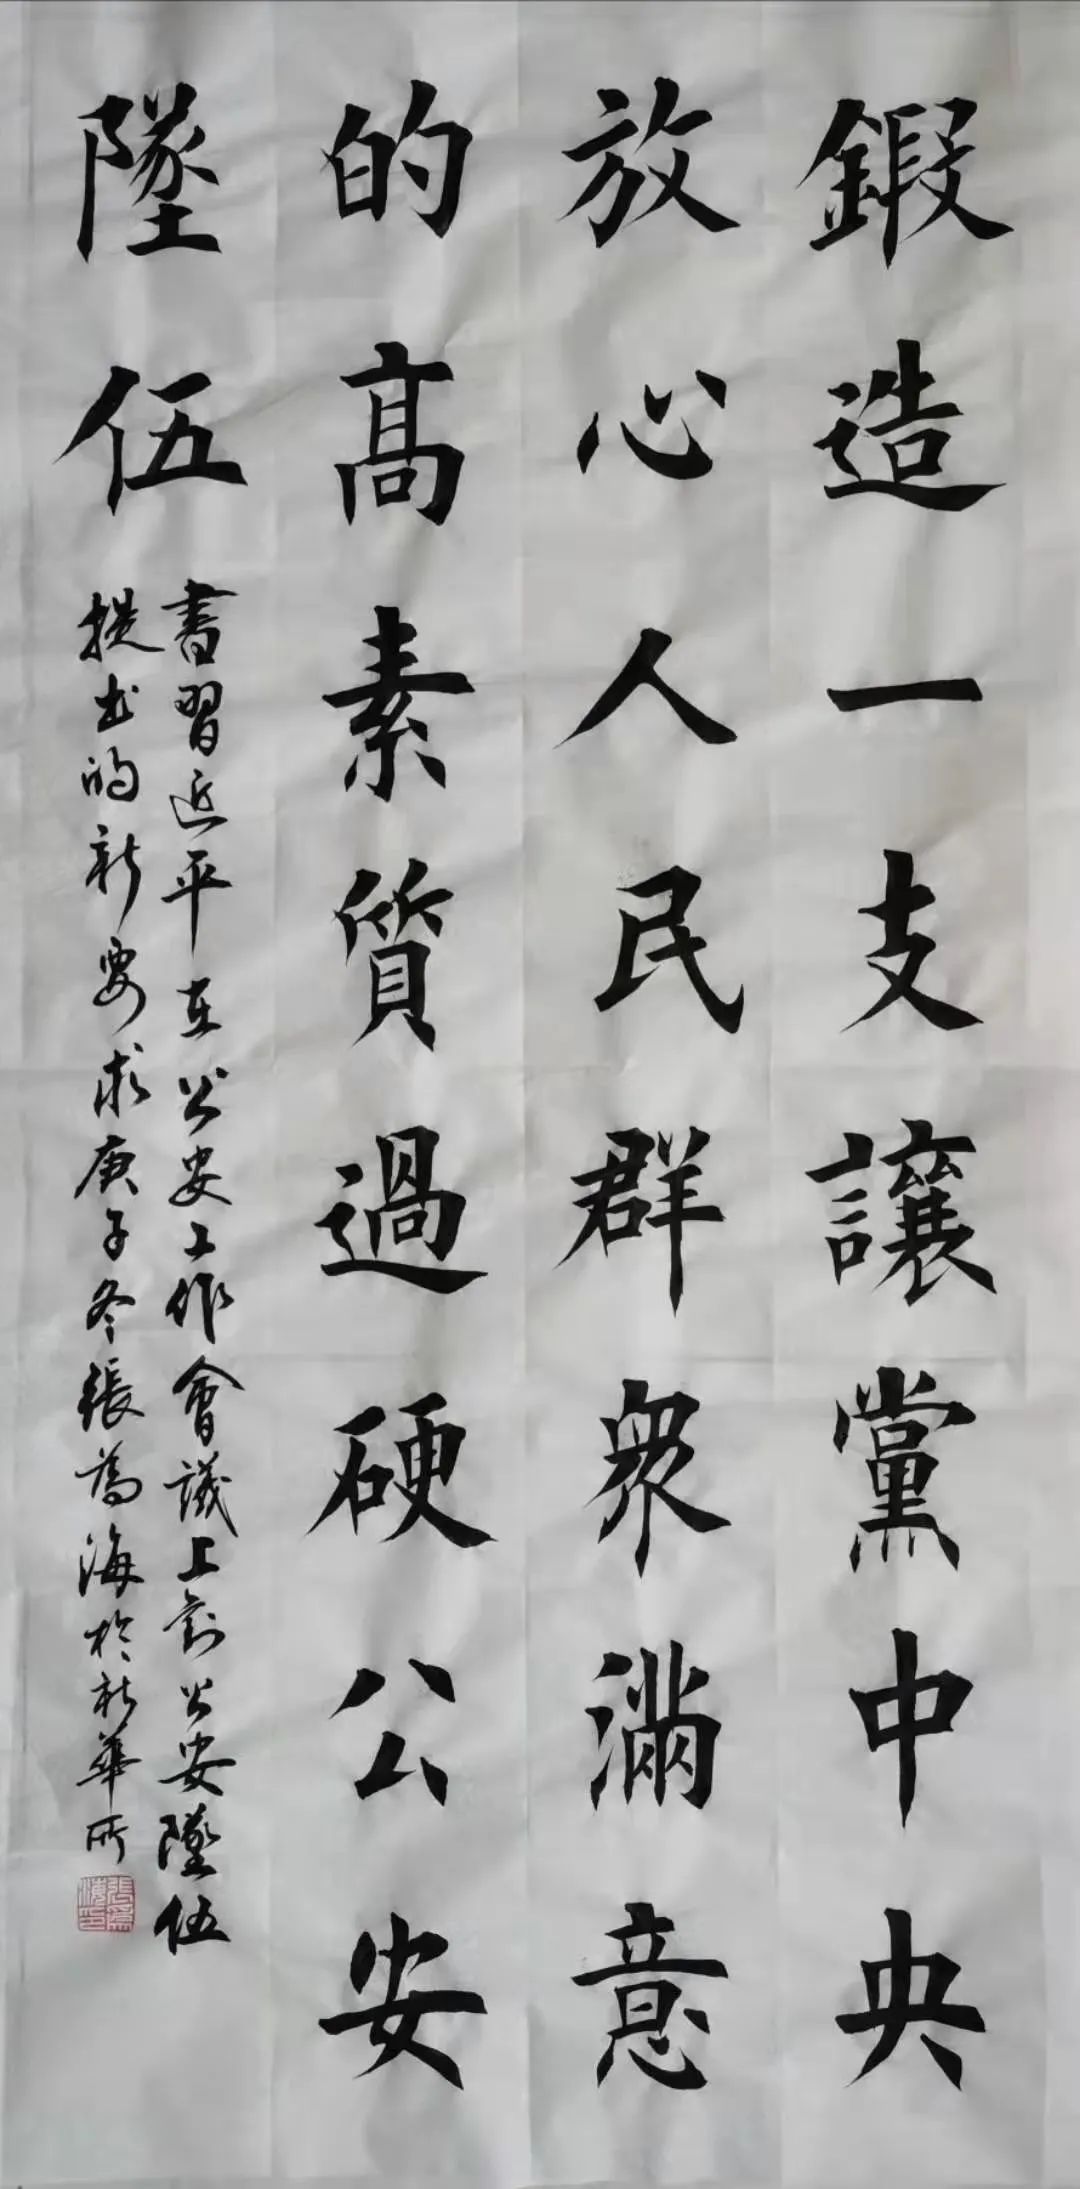 鍛造一支讓黨中央
放心人民群眾滿意
的高素質過硬公安
墜伍
書習近平在公安工作會議上對公安墜伍
提出的新要求庚子冬張為海於新華所